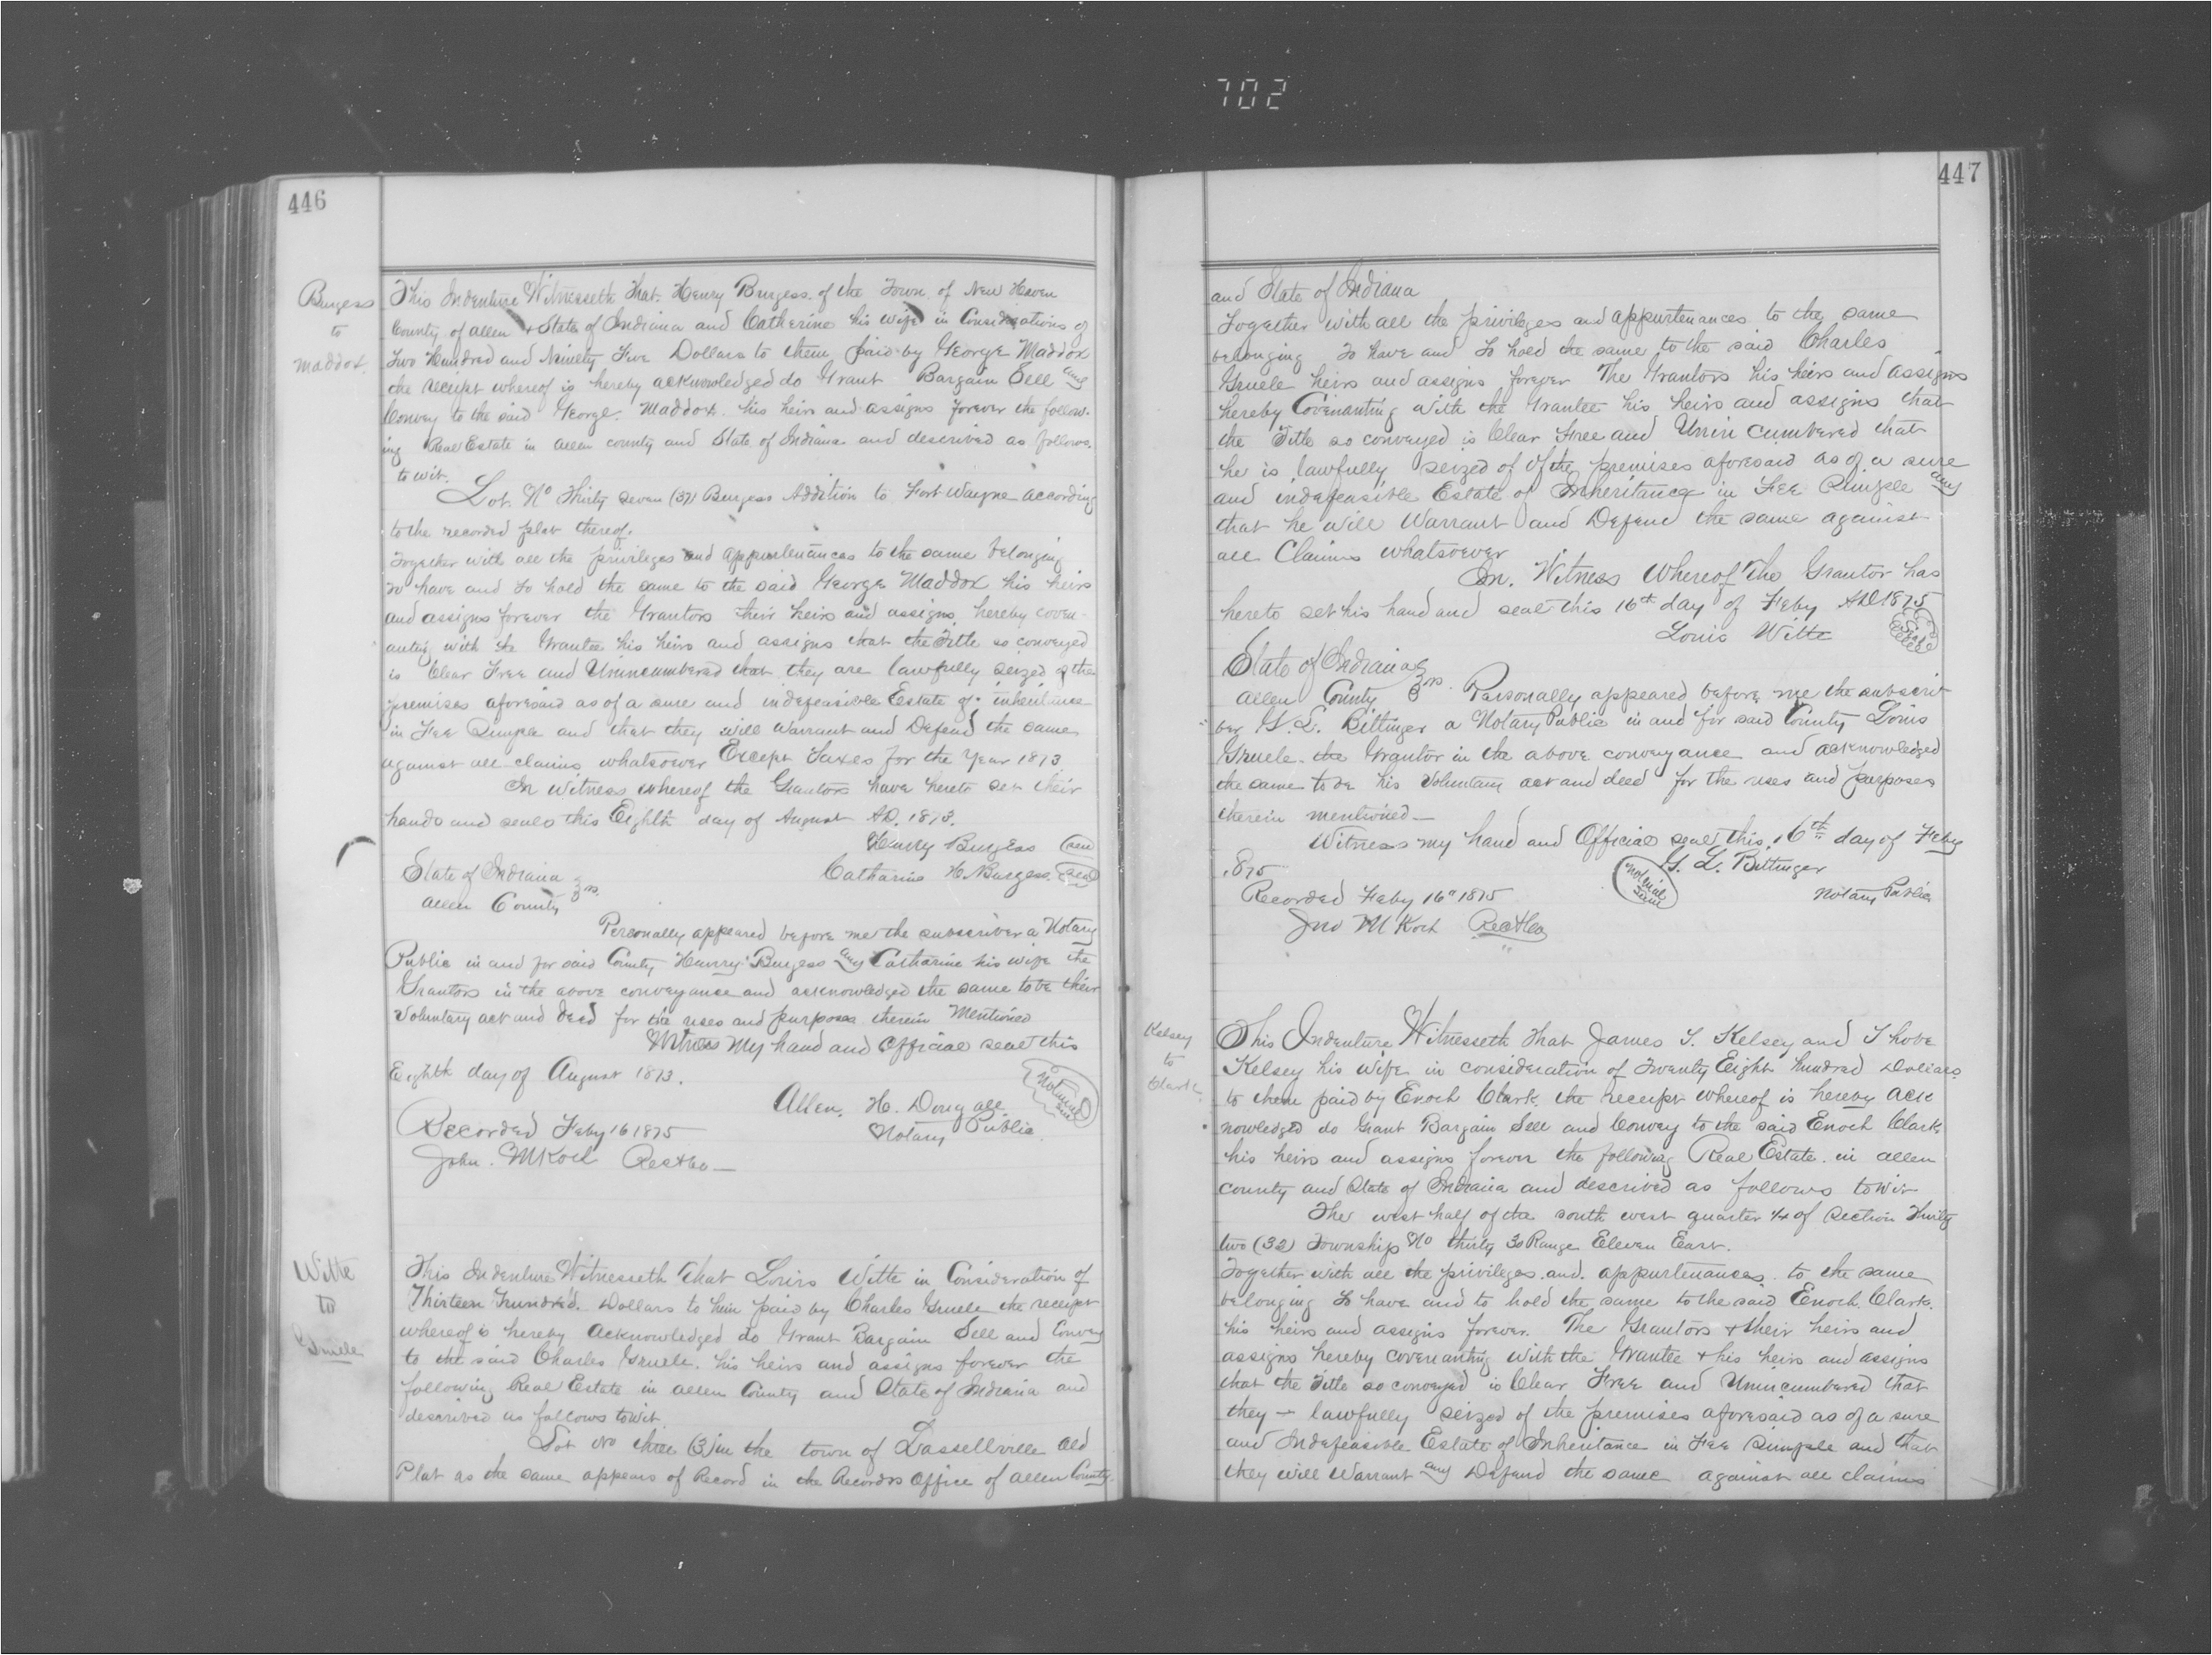 702
446
Burgess
to
Maddox.
This Indenture Witnesseth That Henry Burgess of the Town of New Haven
County of Allen & State of Indiana and Catherine his wife in Considerations of
Two Hundred and Ninety Five Dollars to them paid by George Maddox
the receipt whereof is hereby acknowledged do Grant Bargain Sell and
Convey to the said George Maddox his heirs and assigns forever the follow-
ing Real Estate in Allen county and State of Indiana and described as follows.
to wit.
Lot No Thirty seven (37) Burgess Addition to Fort Wayne according
to the recorded plat thereof.
Together with all the privileges and appurtenances to the same belonging
To have and to hold the same to the said George Maddox his heirs
and assigns forever the Grantors their heirs and assigns hereby coven-
anting with the Grantee his heirs and assigns that the Title so conveyed
is Clear Free and Unincumbered that they are lawfully seized of the
premises aforesaid as of a sure and indefeasible Estate of inheritance
in Fee Simple and that they will Warrant and Defend the same
against all claims whatsoever Except Taxes for the Year 1873
In Witness whereof the Grantors have hereto set their
hands and seals this Eighth day of August AD. 1873.
Henry Burgess (seal)
Catharine H. Burgess (seal)
State of Indiana
Allen County } ss.
Personally appeared before me the subscriber a Notary
Public in and for said County Henry Burgess and Catharine his wife the
Grantors in the above conveyance and acknowledged the same to be their
Voluntary act and deed for the uses and purposes therein Mentioned
Witness My hand and Official seal this
Eighth day of August 1873.
Notarial Seal
Allen. H. Dougall
Notary Public
Recorded Feby 16 1875
John. M Koch Rec
Witte
to
Gruele
This Indenture Witnesseth That Louis Witte in Consideration of
Thirteen Hundred. Dollars to him paid by Charles Gruele the receipt
whereof is hereby Acknowledged do Grant Bargain Sell and Convey
to the said Charles Gruele. his heirs and assigns forever the
following Real Estate in Allen County and State of Indiana and
described as follows towit.
Lot No three (3) in the town of Dassellville old
Plat as the same appears of Record in the Recorders Office of Allen County.
447
and State of Indiana
Together with all the privileges and appurtenances to the same
belonging To have and to hold the same to the said Charles
Gruele heirs and assigns forever The Grantors his heirs and assigns
hereby Covenanting with the Grantee his heirs and assigns that
the Title so conveyed is Clear Free and Unin cumbered that
he is lawfully seized of of the premises aforesaid as of a sure
and indefeasible Estate of Inheritance in Fee Simple and
that he will Warrant and Defend the same against
all Claims whatsoever
In. Witness Whereof The Grantor has
hereto set his hand and seal this 16th day of Feby AD 1875
Louis Witte Seal
State of Indiana
Allen County } ss. Personally appeared before me the subscri-
ber G. L. Bittinger a Notary Public in and for said County Louis
Gruele. the Grantor in the above conveyance and acknowledged
the same to be his Voluntary act and deed for the uses and purposes
therein mentioned—
Witness my hand and Official seal this 16th day of Feby
1875
G. L. Bittinger
Notarial Seal
Notary Public
Recorded Feby 16" 1875
Jno M Koch Rec
Kelsey
to
Clark
This Indenture Witnesseth That James T. Kelsey and
Kelsey his wife in consideration of Twenty Eight hundred Dollars
to them paid by Enoch Clark. the receipt whereof is hereby ack
nowledged do Grant Bargain Sell and Convey to the said Enoch Clark
his heirs and assigns forever the following Real Estate. in Allen
county and State of Indiana and described as follows towit
The west half of the south west quarter 1/4 of section Thirty
two (32) Township No thirty 30 Range Eleven East.
Together with all the privileges. and. appurtenances. to the same
belonging To have and to hold the same to the said Enoch. Clark.
his heirs and assigns forever. The Grantors & their heirs and
assigns hereby covenanting with the Grantee & his heirs and assigns
that the Title so conveyed is Clear Free and Unincumbered that
they - lawfully seized of the premises aforesaid as of a sure
and Indefeasible Estate of Inheritance in Fee Simple and that
they will Warrant and Defend the same against all claims